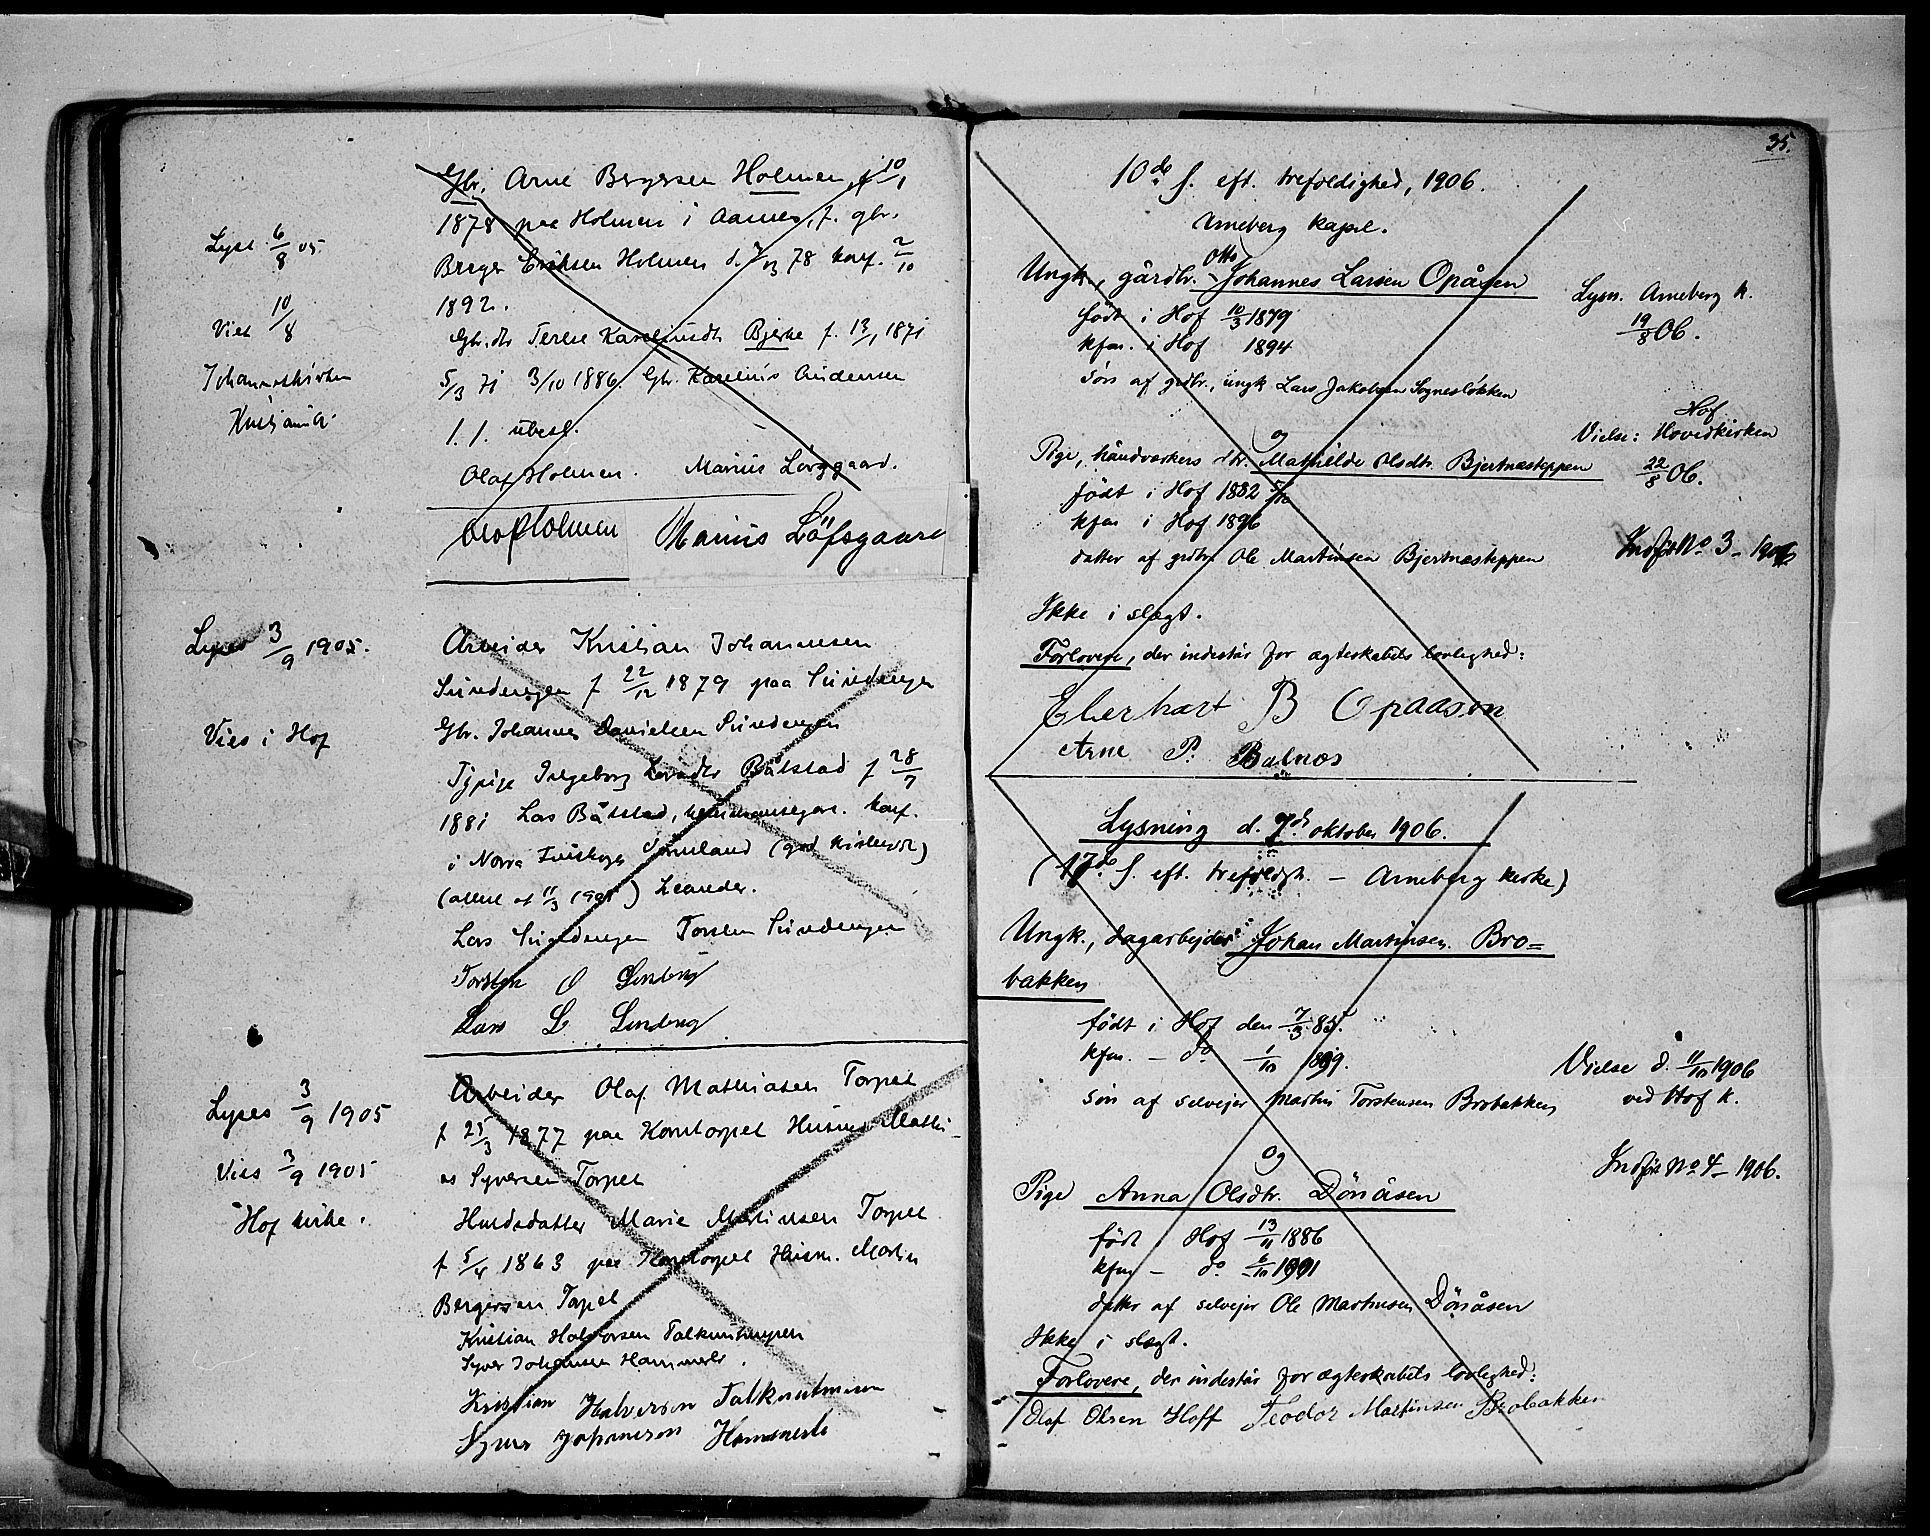 Gbr. Arne Bergersen Holmen f 10/1
1878 paa Holmen i Aames, f. gbr.
Berger Eriksen Holmen d. 78 konf. 2/10
1892.
Lyst 6/8 05.
Viet 10/8
Johanneskirken
Kristiania
Gbr.dtr Terese Kareliusdt Bjerke f. 13/1 1871
5/3 71 3/10 1886. Gbr. Karelius Andersen
1. 1. ubesl.
Olaf Holmen. Marius Lövgaard.
Olaf Holmen Marius Löfsgaard
Lyses 3/9 1905.
Vies i Hof
Arbeider Kristian Johannesen
Sundengen f 22/12 1879 paa Sundengen
Gbr. Johannes Danielsen Sundengen
Tjpige Ingeborg Båtstad f 28/7
1881 Lars Båtstad, konf.
i Norra Värmland (
(attest af 11/3 1905) Leander.
Lars Sundengen Torsten Sundengen
Torsten O Sundeng
Lars L Sundeng
Lyses 3/9 1905
Vies 3/9 1905
Hof kirke.
Arbeider Olaf Mathiasen Torpet
f 25/3 1877 paa Korntorpet Husm. Mathi-
as Syversen Torpet
Husdsdatter Marie Martinsen Torpet
f 5/4 1863 paa Korntorpet Husm. Martin
Bergersen Torpet
Kristian Halvorsen
Syver Johansen Hammerli.
Kristian Halvorsen
Syver Johansen Hammerli
35.
10de s. eft. trefoldighed, 1906.
Arneberg kapel.
Otto
Ungk., gårdbr. Johannes Larsen Opåsen
født i Hof 10/3 1879
kfm. i Hof 1894
søn af grdbr., ungk Lars Jakobsen Sognesløkken
Lysn. Arneberg k.
19/8 06.
og
Pige, håndverkers dtr. Mathilde Olsdtr. Bjertnæsteppen
født i Hof 1882 5/10
kfm i Hof 1896
datter af grdbr Ole Martinsen Bjertnæsteppen
Hof
Vielse: Hovedkirken
22/8 06.
Indført No 3 - 1906
Ikke i slægt.
Forlovere, der indestår for ægteskabets lovlighed:
Eberhart B Opaasen
Arne P. Balnæs
Lysning d. 7de oktober 1906.
(17de s. eft. trefoldigh. - Arneberg kirke)
Ungk., dagarbejder Johan Martinsen Bro=
bakken
født i Hof den 7/3 85.
kfm. - do 1/10 1899.
søn af selvejer Martin Torstensen Brobakken
Vielse d. 11/10 1906
ved Hof k.
Indført No 4 - 1906.
og
Pige Anna Olsdtr. Dönåsen
født Hof 13/11 1886
kfm - do 6/10 1901
datter af selvejer Ole Martinsen Dönåsen
Ikke i slægt.
Forlovere, der indestår for ægteskabets lovlighed:
Olaf Olsen Hoff Teodor Martinsen Brobakken